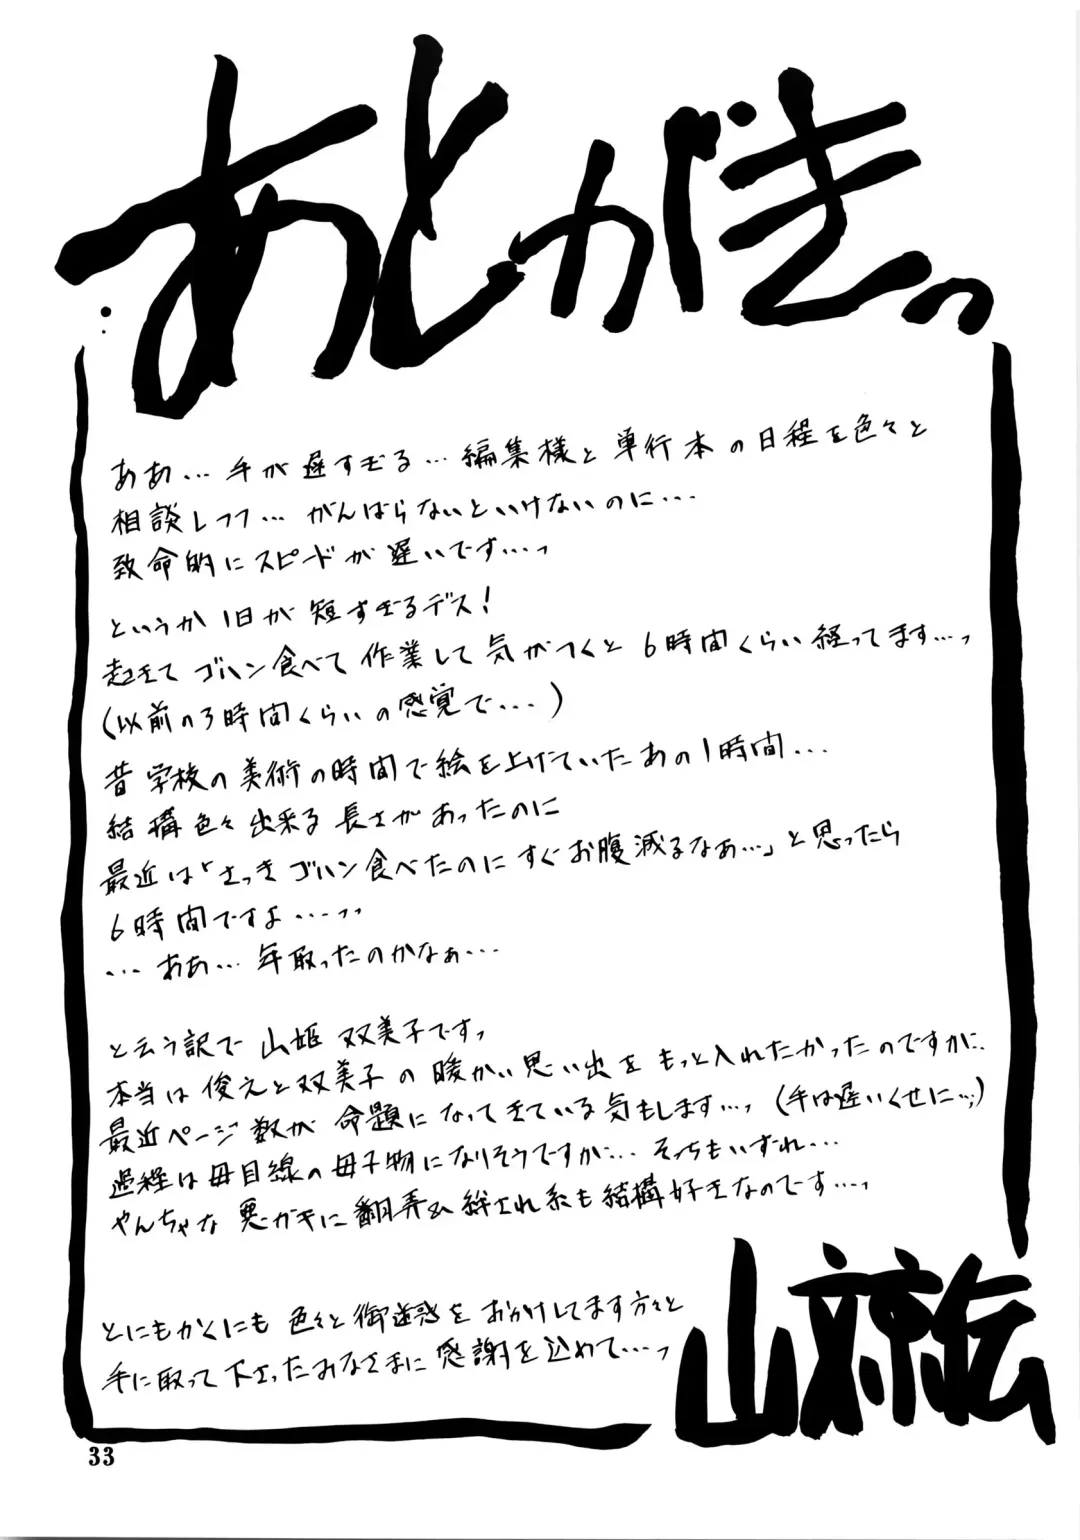 あとがきっ
ああ…手が遅すぎる…編集様と単行本の日程を色々と
相談しつつ…がんばらないといけないのに…
致命的にスピードが遅いです…っ
というか1日が短すぎるデス!
起きてゴハン食べて作業して気がつくと6時間くらい経ってます…っ
(以前の3時間くらいの感覚で…)
昔学校の美術の時間で絵を上げていたあの1時間…
結構色々出来る長さがあったのに
最近は「さっきゴハン食べたのにすぐお腹減るなぁ…」と思ったら
6時間ですよ…っっ
…ああ…年取ったのかなぁ…
と云う訳で山姫双美子ですっ
本当は俊元と双美子の暖かい思い出をもっと入れたかったのですが…
最近ページ数が命題になってきている気もします…っ(手は遅いくせに…;)
過程は母目線の母子物になりそうですが…そっちもいずれ…
やんちゃな悪ガキに翻弄&絆され系も結構好きなのです…っ
とにもかくにも色々と御迷惑をおかけしてます方々と
手に取って下さったみなさまに感謝を込めて…っ
山文京伝
33